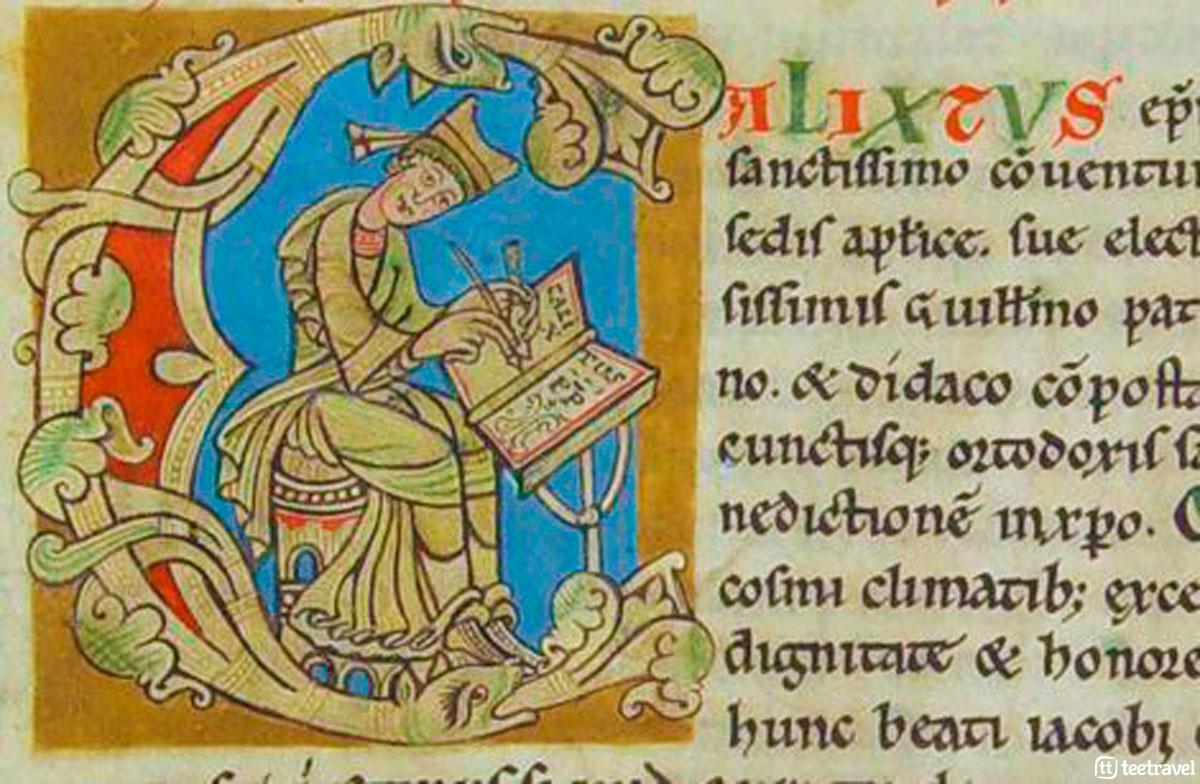 CALIXTVS ep̄
sanctissimo cōuentu
sedis apłice. sue elect
sissimis Guiłłmo pat
no. & didaco cōposta
cunctisq; ortodoxis
nedictionē in xp̄o. C
cosmi climatib; exce
dignitate & honore
hunc beati iacobi
tt teetravel